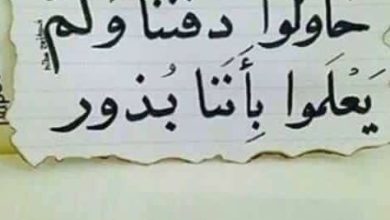 حاولوا دفننا ولم
يَعْلَموا بِأَنَنا بُذور